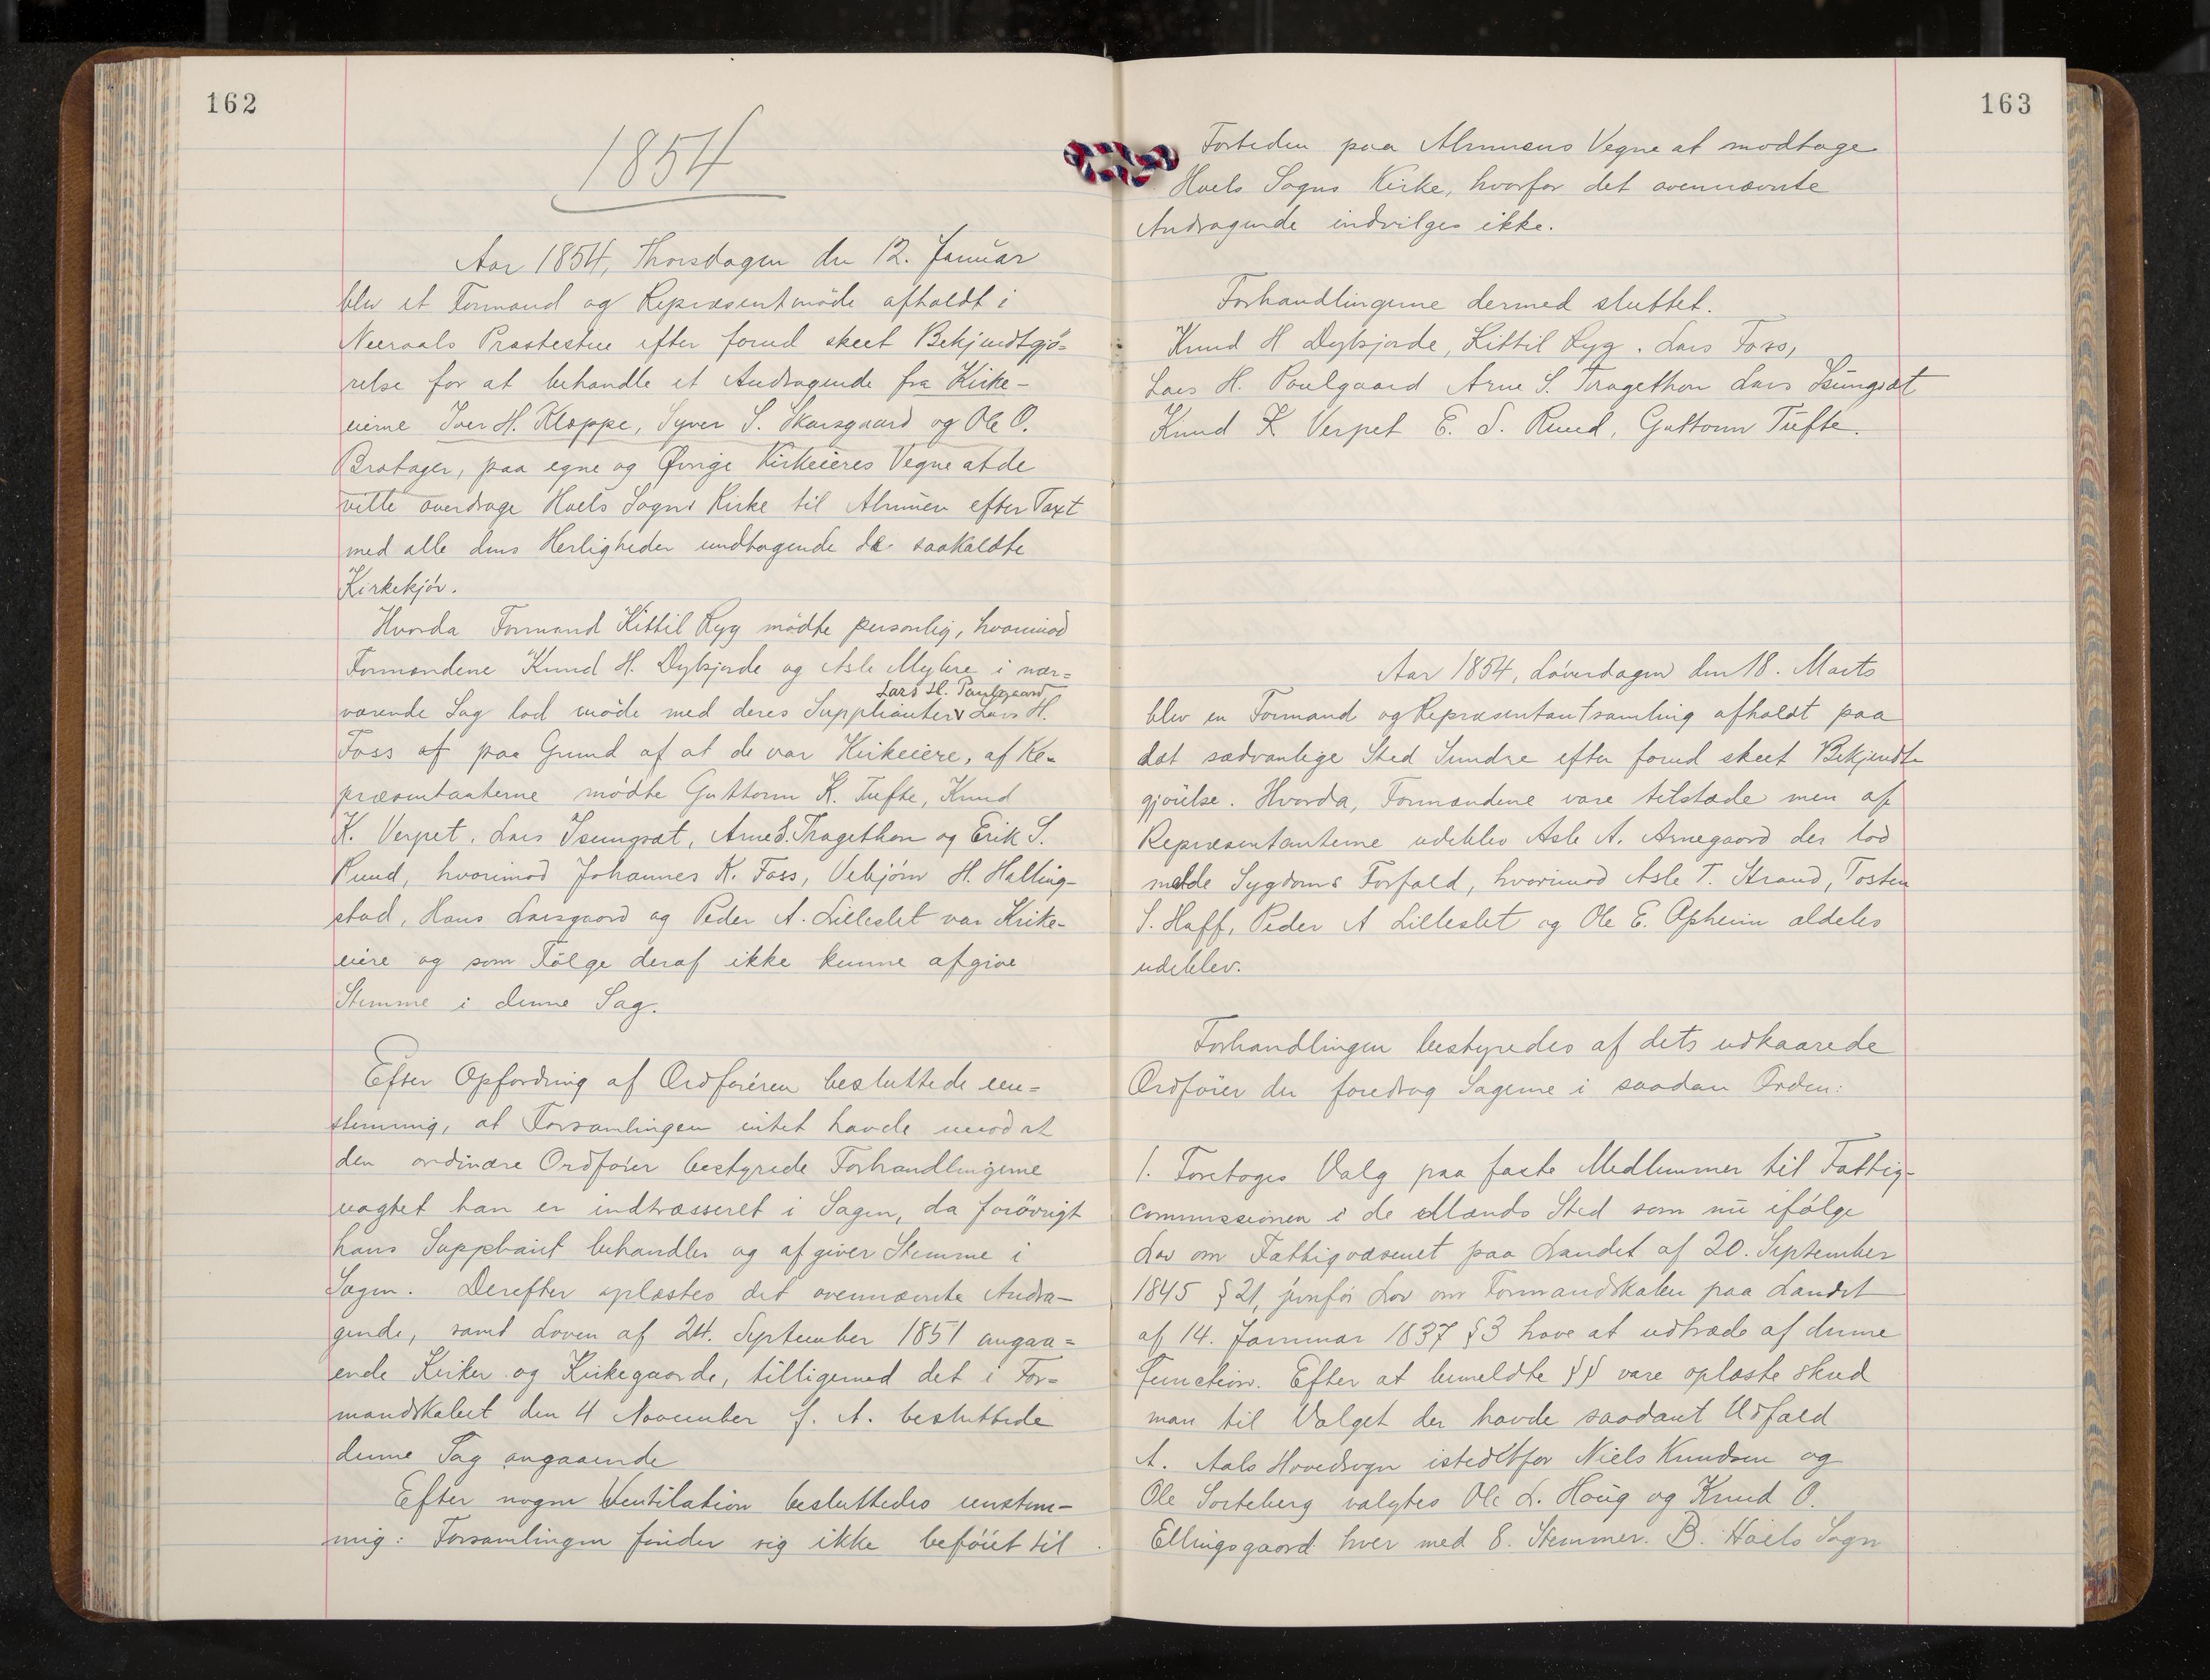 162
1854
Aar 1854, Thorsdagen den 12. Januar
blev et Formand og Repræsentmöde afholdt i
Neeraals Præstestue efter forud skeet Bekjendtgjö=
relse for at behandle et Andragende fra Kirke-
eierne Iver H. Kloppe, Syver S. Skarsgaard og Ole O.
Brotager, paa egne og Øvrige Kirkeieres Vegne at de
ville overdrage Hoels Sogns Kirke til Almuen efter Taxt
med alle dens Herligheder undtagende de saakaldte
Kirkekjör.
Hvorda Formand Kittil Ryg mödte personlig, hvorimod
Formændene Knud H. Dybsjorde og Asle Myhre i nær=
værende Sag lod möde med deres Supplianter v Lars H.
Lars H. Paulgaard
Foss af paa Grund af at de var Kirkeiere, af Re=
præsentanterne mödte Guttorm K. Tufte, Knud
K. Verpet, Lars Isungsæt, Arne S. Tragethon og Erik S.
Ruud, hvorimod Johannes K. Foss, Vebjörn H. Halling-
stad, Hans Larsgaard og Peder A. Lilleslet var Kirke-
eiere og som Fölge deraf ikke kunne afgive
Stemme i denne Sag.
Efter Opfordring af Ordföreren besluttede een=
stemmig, at Forsamlingen intet havde imod at
den ordinære Ordförer bestyrede Forhandlingerne
uagtet han er indtræsseret i Sagen, da forövrigt
hans Suppliant behandler og afgiver Stemme i
Sagen. Derefter oplæstes det ovennævnte Andra-
gende, samt Loven af 24. September 1851 angaa=
ende Kirker og Kirkegaarde, tilligemed det i For=
mandskabet den 4 November f. A. besluttede
denne Sag angaaende
Efter nogen Ventilation besluttedes eenstem-
mig: Forsamlingen finder sig ikke beföiet til
163
Fortiden paa Almuens Vegne at modtage
Hoels Sogns Kirke, hvorfor det ovennævnte
Andragende indvilges ikke.
Forhandlingerne dermed sluttet.
Knud H Dybsjorde, Kittil Ryg. Lars Foss,
Lars H. Paulgaard Arne S. Tragethon Lars Isungsæt
Knud K Verpet E. S. Ruud, Guttorm Tufte.
Aar 1854, Löverdagen den 18. Marts
blev en Formand og Repræsentantsamling afholdt paa
det sædvanlige Sted Sundre efter forud skeet Bekjendt-
gjörelse. Hvorda, Formændene vare tilstæde men af
Repræsentanterne udeblev Asle A. Arnegaard der lod
melde Sygdoms Forfald, hvorimod Asle T. Strand, Tosten
S. Haff, Peder A Lilleslet og Ole E. Opheim aldeles
udeblev.
Forhandlingen bestyredes af dets udkaarede
Ordförer der foredrog Sagerne i saadan Orden:
1. Foretoges Valg paa faste Medlemmer til Fattig-
commissionen i de Mænds Sted som nu ifölge
Lov om Fattigvæsenet paa Landet af 20. September
1845 § 21, jvnför Lov om Formandskaber paa Landet
af 14. Januar 1837 § 3 have at udtræde af denne
Function. Efter at bemeldte §§ vare oplæste skred
man til Valget der havde saadant Udfald
A. Aals Hovedsogn istedetfor Niels Knudsen og
Ole Sorteberg valgtes Ole L. Houg og Knud O.
Ellingsgaard hver med 8. Stemmer. B. Hoels Sogn